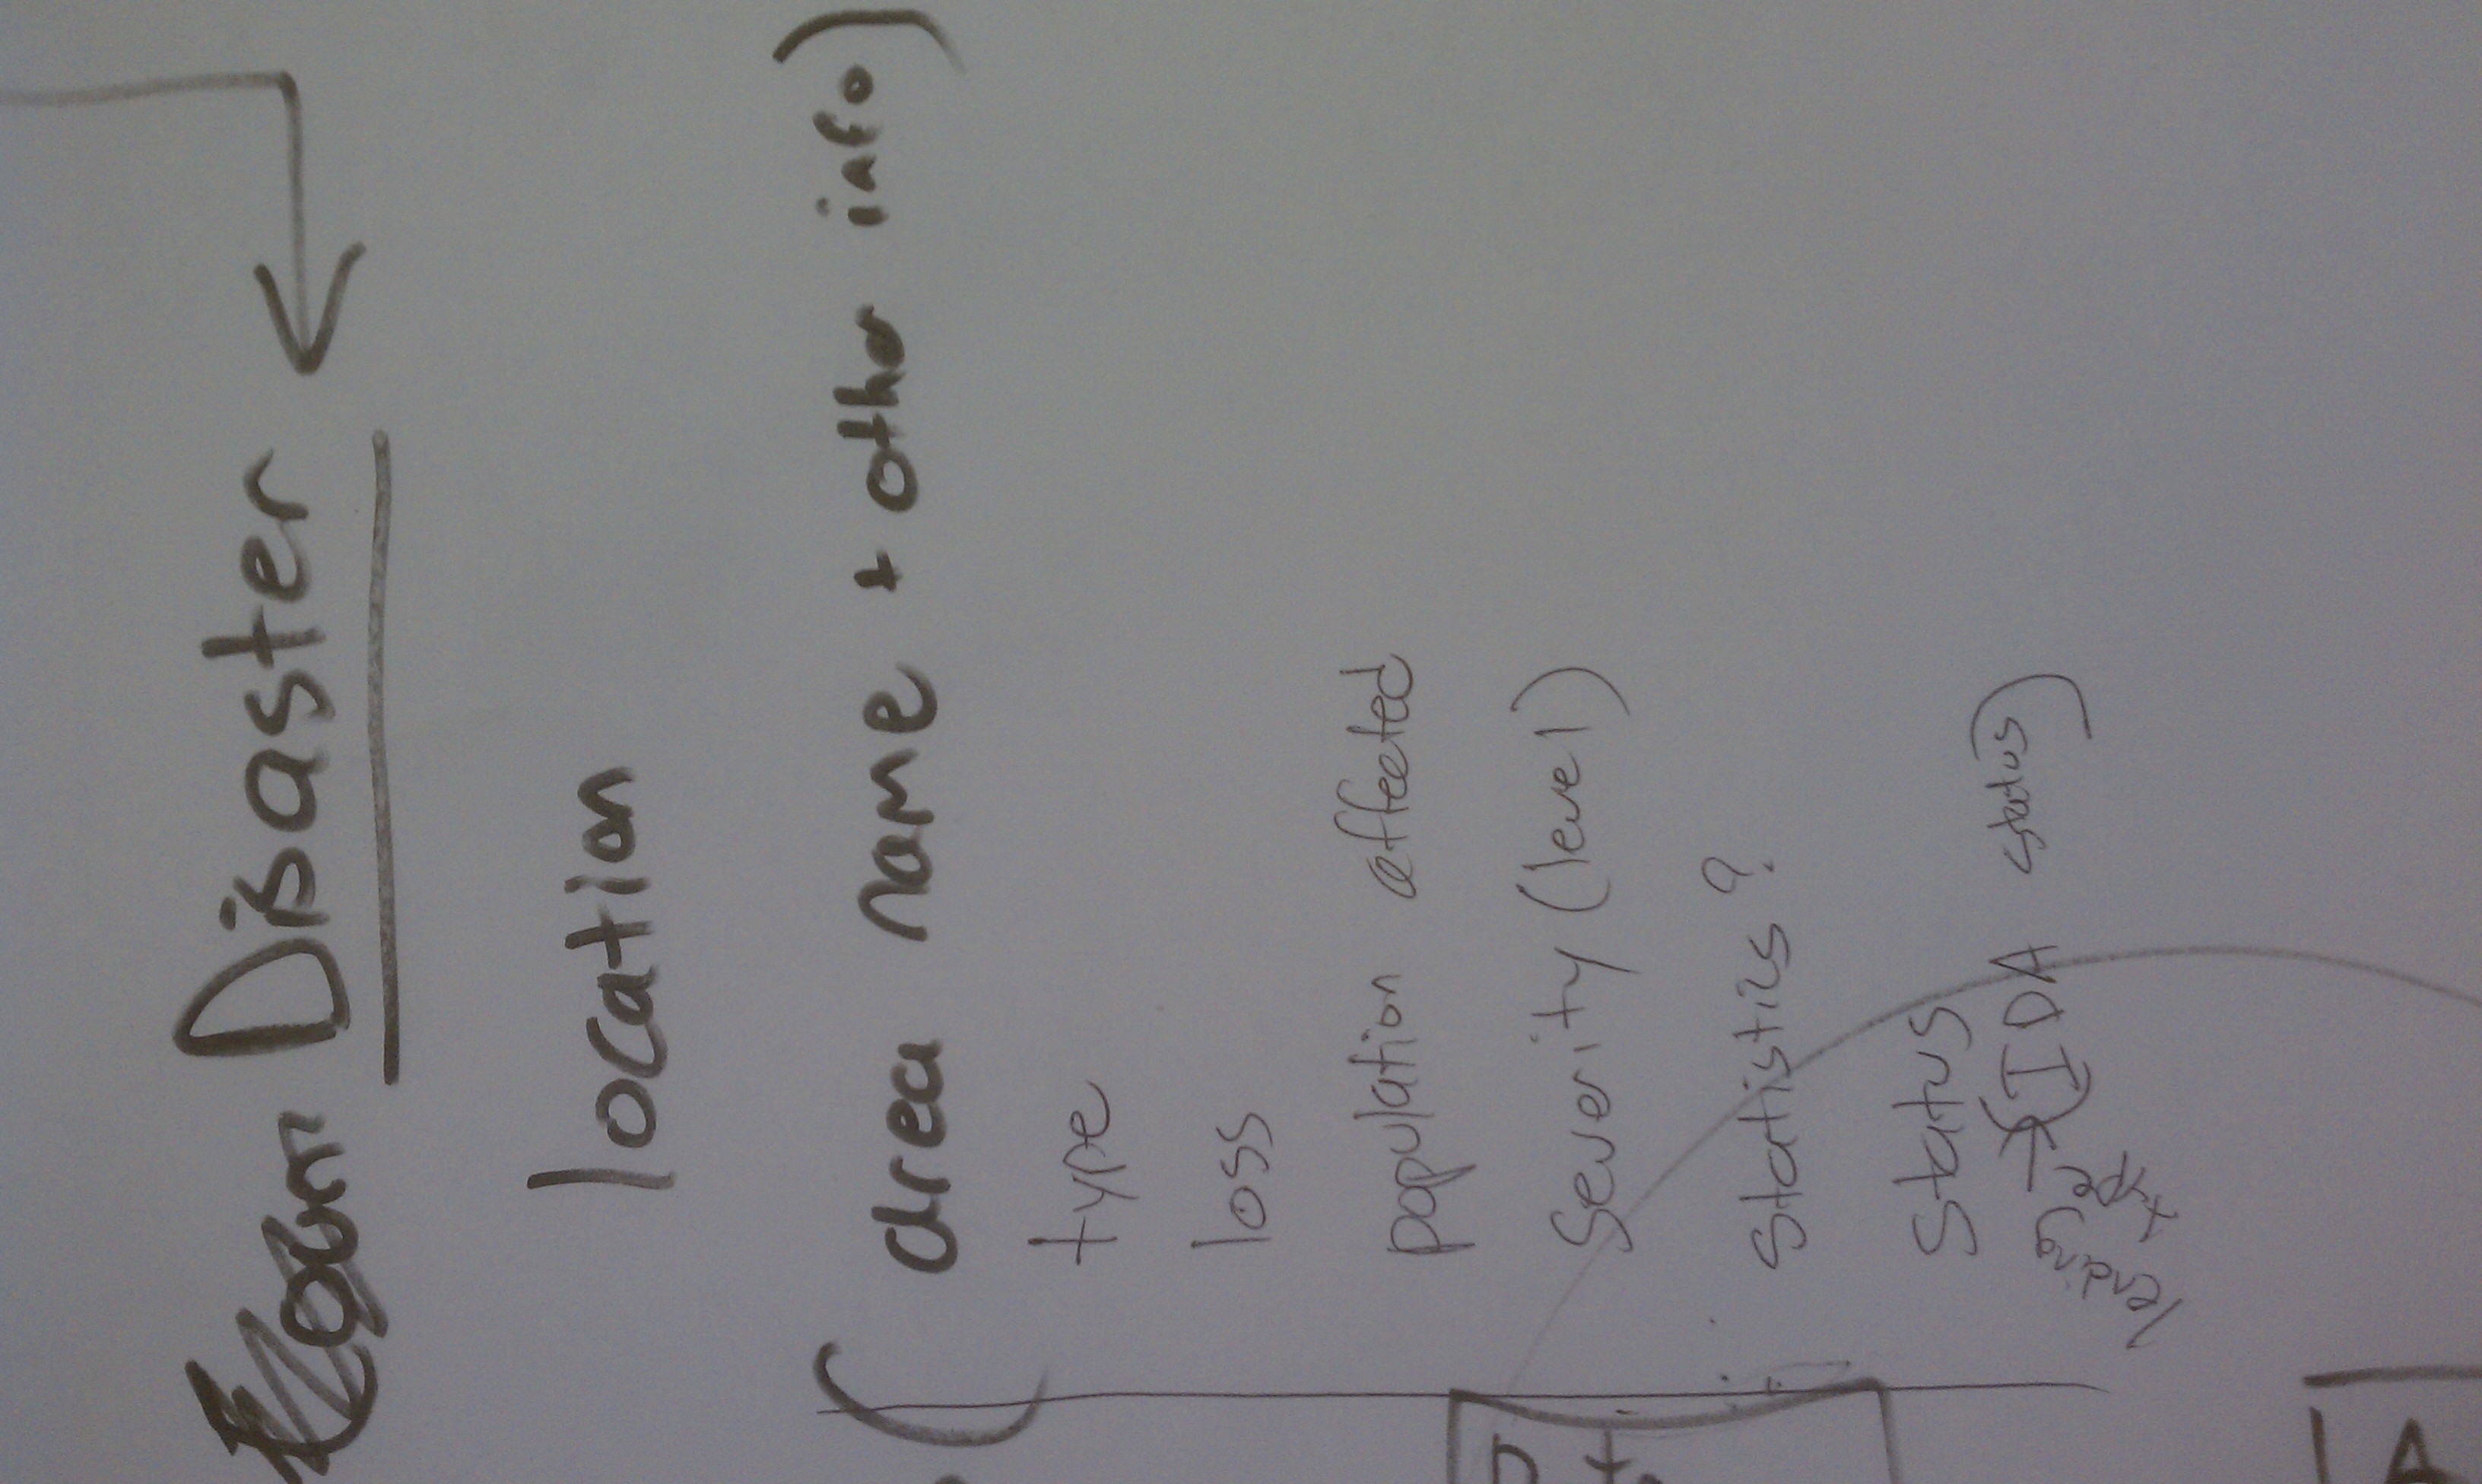 Disaster
location
(area name + other info)
type
loss
population affected
Severity (level)
Statistics?
Status
(IDA status)
lending
A